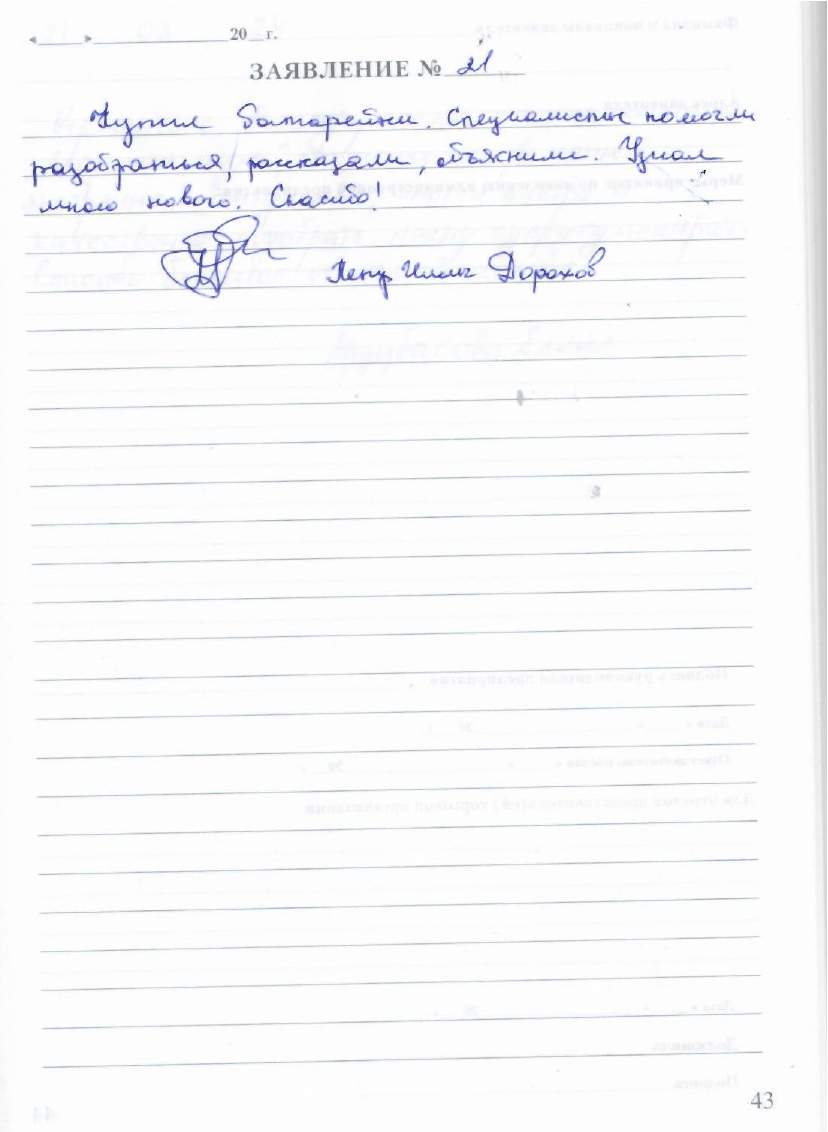 «____»____________20__г.
ЗАЯВЛЕНИЕ № 21
Купил батарейки. Специалисты помогли
разобраться, рассказали, объяснили. Узнал
много нового. Спасибо!
Петр Ильич Дорохов
43